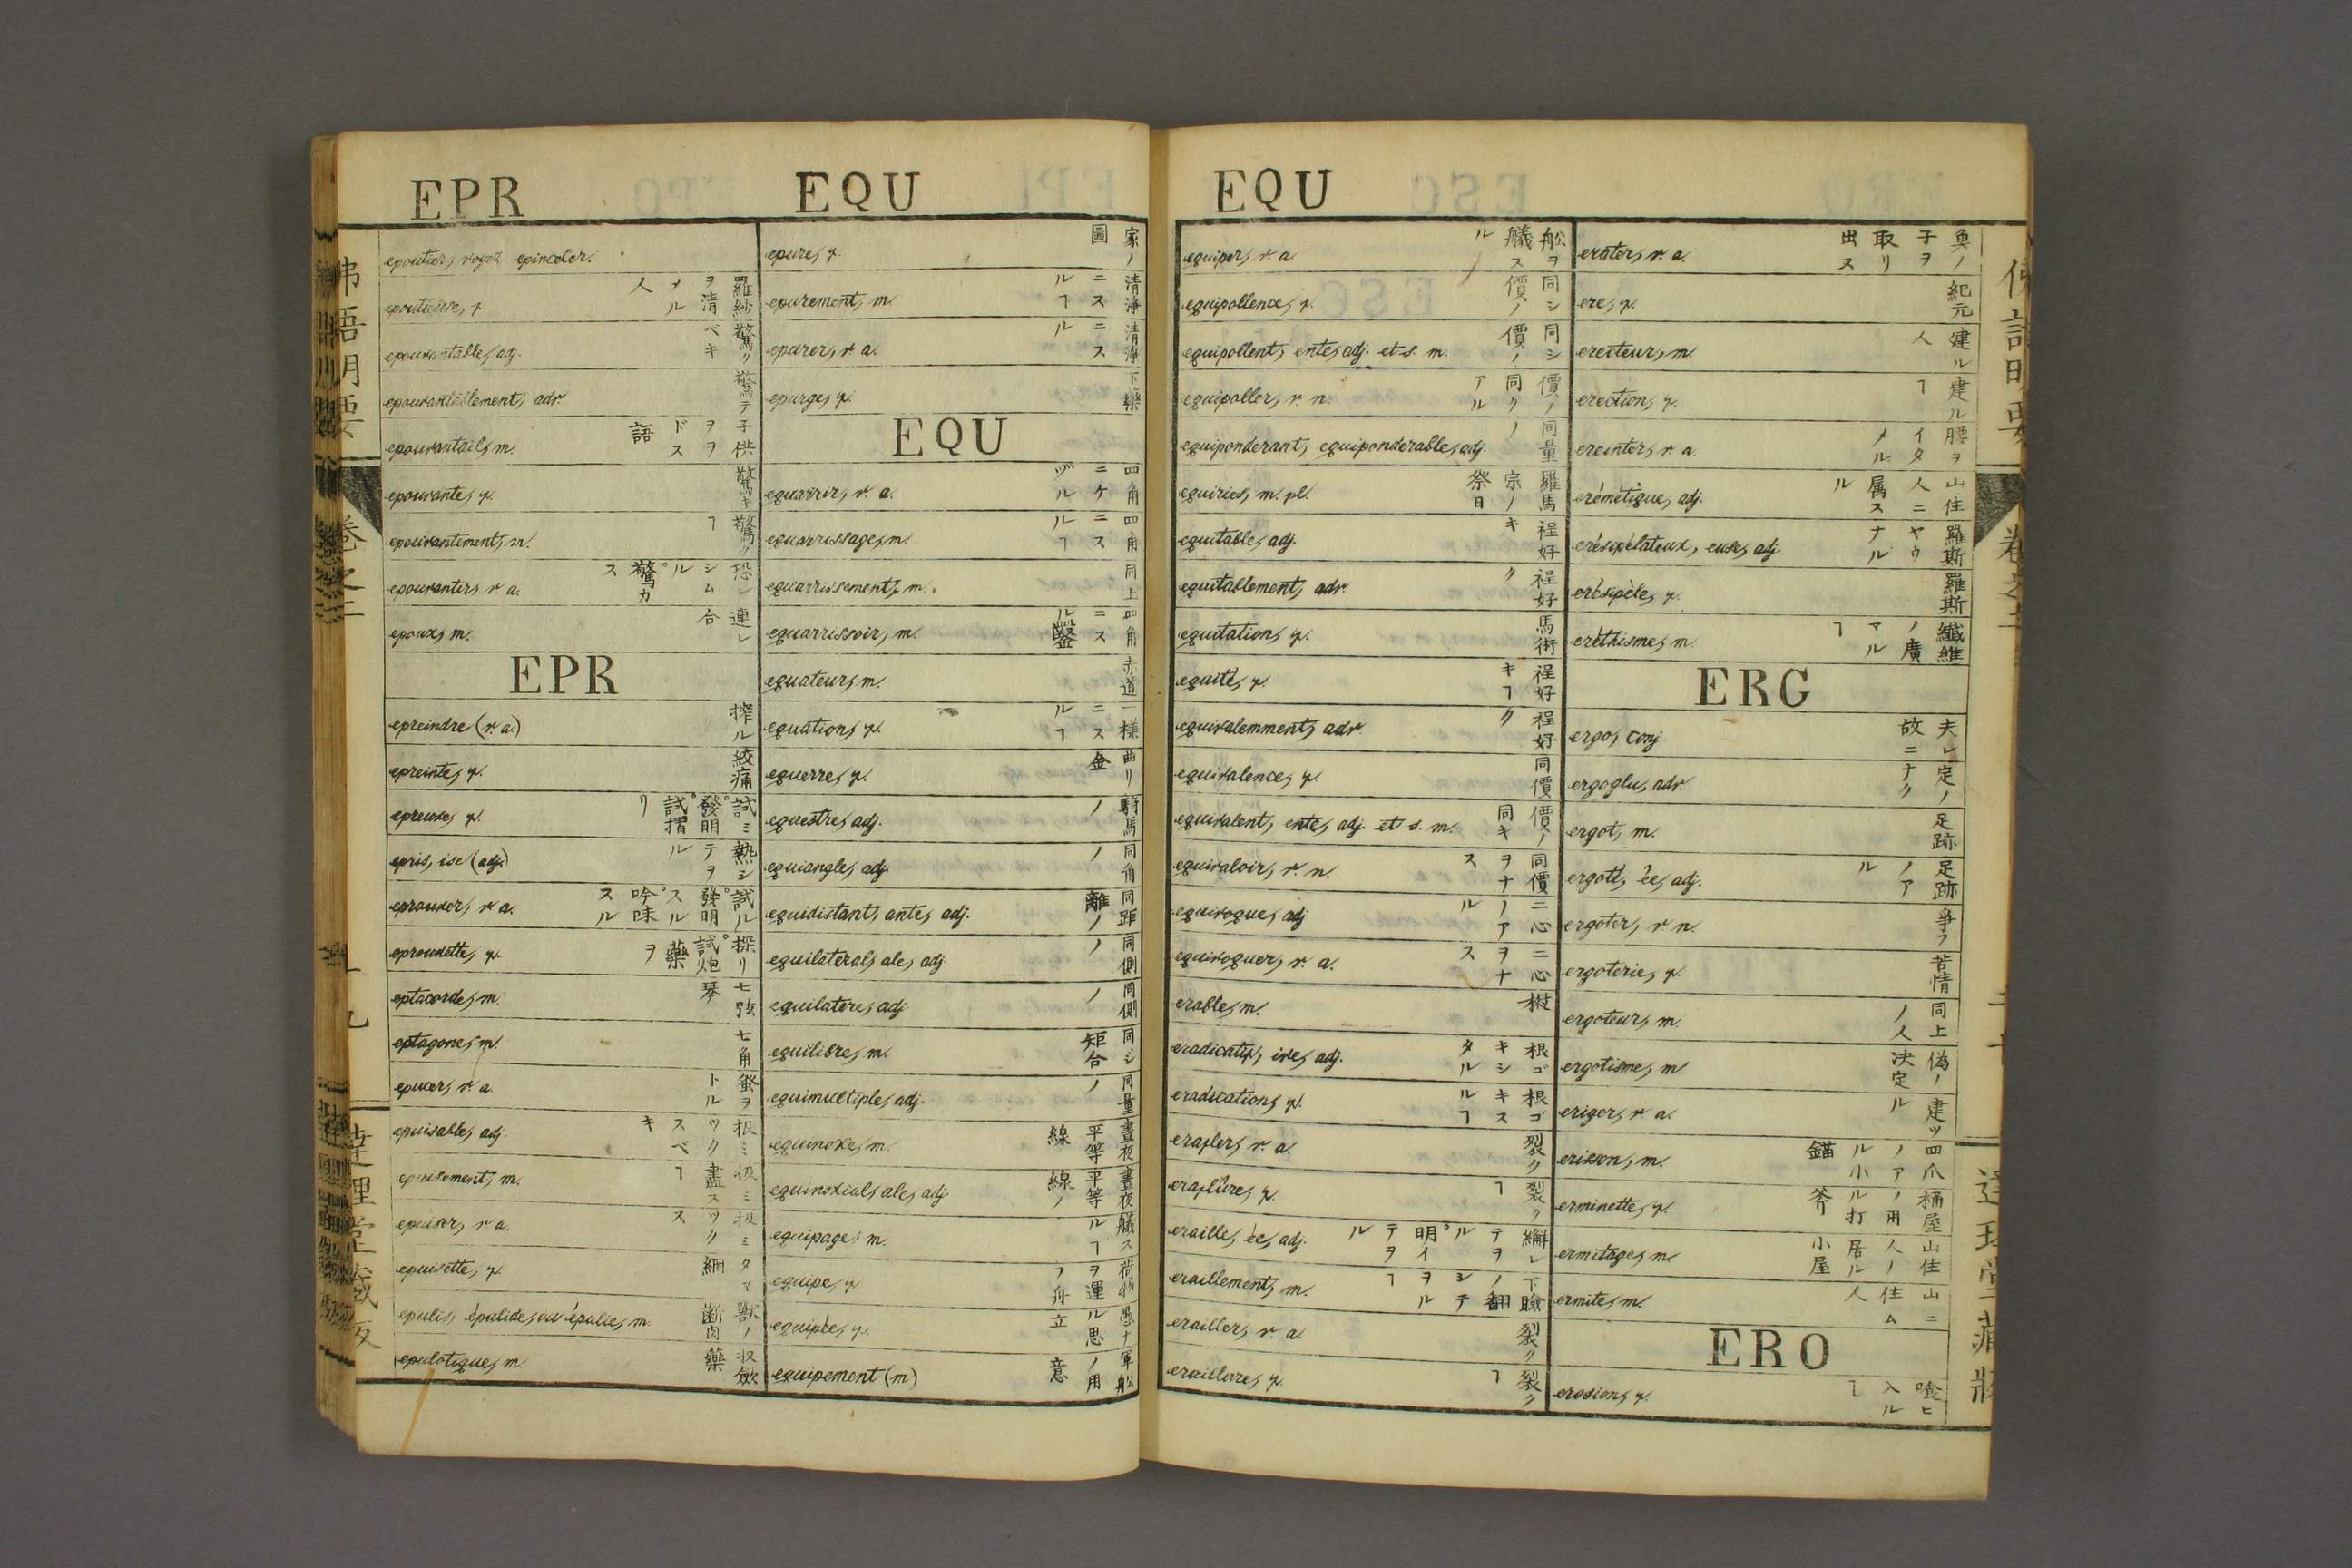 EPR
EQU
epoutier, voyez epinceler.
epoutieuse, f. 羅紗ヲ清メル人
epouvantable, adj. 驚クベキ
epouvantablement, adv. 驚テ
epouvantail, m. 子供ヲヲドス語
epouvante, f. 驚キ
epouvantement, m. 驚クヿ
epouvanter, v. a. 恐レシムル。驚カス
epoux, m. 連レ合
EPR
epreindre (v. a.) 搾ル
epreinte, f. 絞痛
epreuve, f. 試ミ。發明。試摺リ
epris, ise (adj.) 熱シテヲル
eprouver, v. a. 試ル。發明スル。吟味スル
eprouvette, f. 探リ。試炮藥ヲ
eptacorde, m. 七弦琴
eptagone, m. 七角
epucer, v. a. 蚤ヲトル
epuisable, adj. ミツクスベキ
epuisement, m. 扱ミ盡スヿ
epuiser, v. a. 扱ミツクス
epuisette, f. タマ網
epulis, épulide, ou épulie, m. 獸ノ齒肉
epulotique, m. 収斂藥
epure, f. 家ノ圖
epurement, m. 清浄ニスルヿ
epurer, v. a. 清浄ニスル
epurge, f. 下藥
EQU
equarrir, v. a. 四角ニケヅル
equarrissage, m. 四角ニスルヿ
equarrissement, m. 同上
equarrissoir, m. 四角ニスル鑿
equateur, m. 赤道
equation, f. 一樣ニスルヿ
equerre, f. 曲リ金
equestre, adj. 騎馬ノ
equiangle, adj. 同角ノ
equidistant, ante, adj. 同距離ノ
equilateral, ale, adj. 同側ノ
equilatere, adj. 同側ノ
equilibre, m. 同シ矩合
equimultiple, adj. 同量ノ
equinoxe, m. 晝夜平等線
equinoxial, ale, adj. 晝夜平等線ノ
equipage, m. 艤スルヿ
equipe, f. 荷物ヲ運フ舟
equipée, f. 愚ナル思立
equipement (m) 軍舩ノ用意
EQU
equiper, v. a. 舩ヲ艤スル
equipollence, f. 同シ價ノ
equipollent, ente, adj. et s. m. 同シ價ノ
equipoller, v. n. 價ノ同クアル
equiponderant, equiponderable, adj. 同量ノ
equiries, m. pl. 羅馬宗ノ祭日
equitable, adj. 程好キ
equitablement, adv. 程好ク
equitation, f. 馬術
equité, f. 程好キヿ
equivalemment, adv. 程好ク
equivalence, f. 同價
equivalent, ente, adj. et s. m. 價ノ同キ
equivaloir, v. n. 同價ヲナス
equivoque, adj. 二心ノアル
equivoquer, v. a. 二心ヲナス
erable, m.
eradicatif, ive, adj. 根ゴキシタル
eradication, f. 根ゴキスルヿ
erafler, v. a. 裂ク
eraflure, f. 裂クヿ
eraillé, ée, adj. 綳レテヲル。明イテヲル
eraillement, m. 下瞼ノ翻シテヲルヿ
erailler, v. a. 裂ク
eraillure, f. 裂クヿ
erater, v. a. 魚ノ子ヲ取リ出ス
ere, f. 紀元
erecteur, m. 建ル人
erection, f. 建ルヿ
ereinter, v. a. 腰ヲイタメル
erémétique, adj. 山住人ニ属スル
erésipélateux, euse, adj. 羅斯ヤウナル
erésipèle, f. 羅斯
eréthisme, m. 纖維ノ廣マルヿ
ERG
ergo, conj. 夫レ故ニ
ergoglu, adv. 定ノナク
ergot, m. 足跡
ergoté, ée, adj. 足跡ノアル
ergoter, v. n. 爭フ
ergoterie, f. 苦情
ergoteur, m. 同上ノ人
ergotisme, m. 偽ノ決定
eriger, v. a. 建ツル
erisson, m. 四爪ノアル小錨
erminette, f. 桶屋ノ用ル打斧
ermitage, m. 山住人ノ居ル小屋
ermite, m. 山ニ住ム人
ERO
erosion, f. 喰ヒ入ルヿ